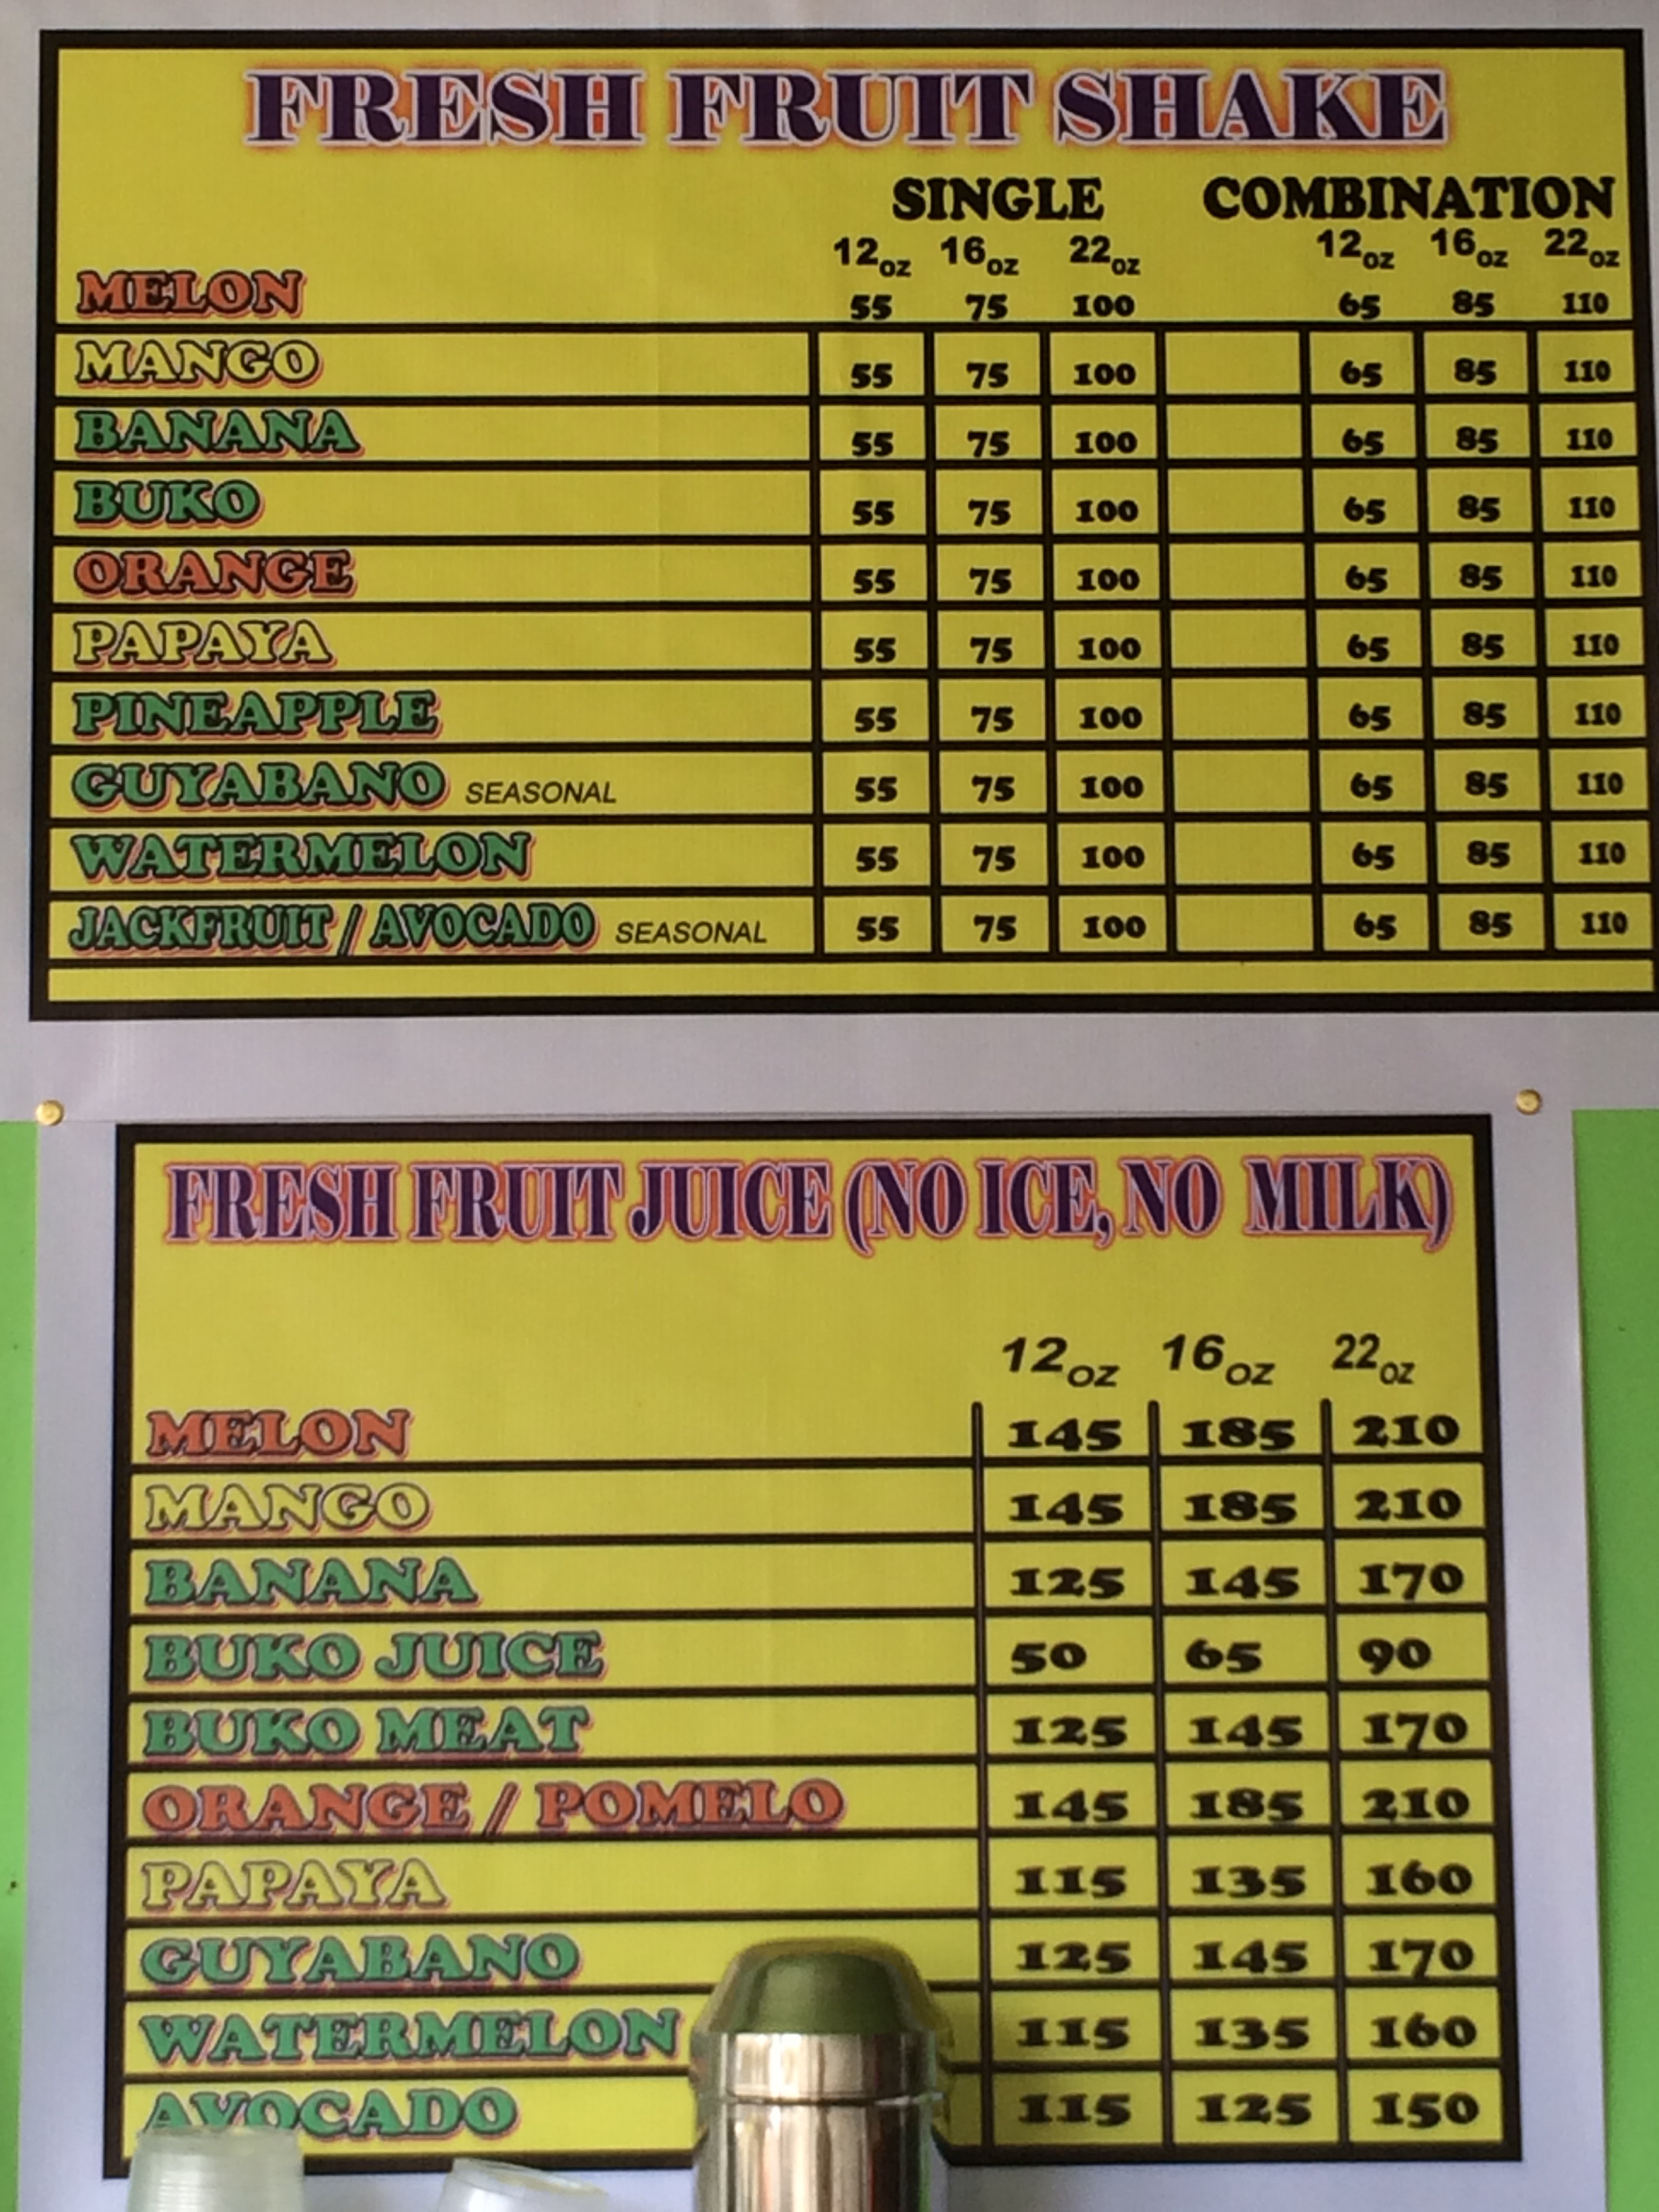 FRESH FRUIT SHAKE
SINGLE COMBINATION
12oz 16oz 22oz 12oz 16oz 22oz
MELON 55 75 100 65 85 110
MANGO 55 75 100 65 85 110
BANANA 55 75 100 65 85 110
BUKO 55 75 100 65 85 110
ORANGE 55 75 100 65 85 110
PAPAYA 55 75 100 65 85 110
PINEAPPLE 55 75 100 65 85 110
GUYABANO SEASONAL 55 75 100 65 85 110
WATERMELON 55 75 100 65 85 110
JACKFRUIT / AVOCADO SEASONAL 55 75 100 65 85 110
FRESH FRUIT JUICE (NO ICE, NO MILK)
12oz 16oz 22oz
MELON 145 185 210
MANGO 145 185 210
BANANA 125 145 170
BUKO JUICE 50 65 90
BUKO MEAT 125 145 170
ORANGE / POMELO 145 185 210
PAPAYA 115 135 160
GUYABANO 125 145 170
WATERMELON 115 135 160
AVOCADO 115 125 150